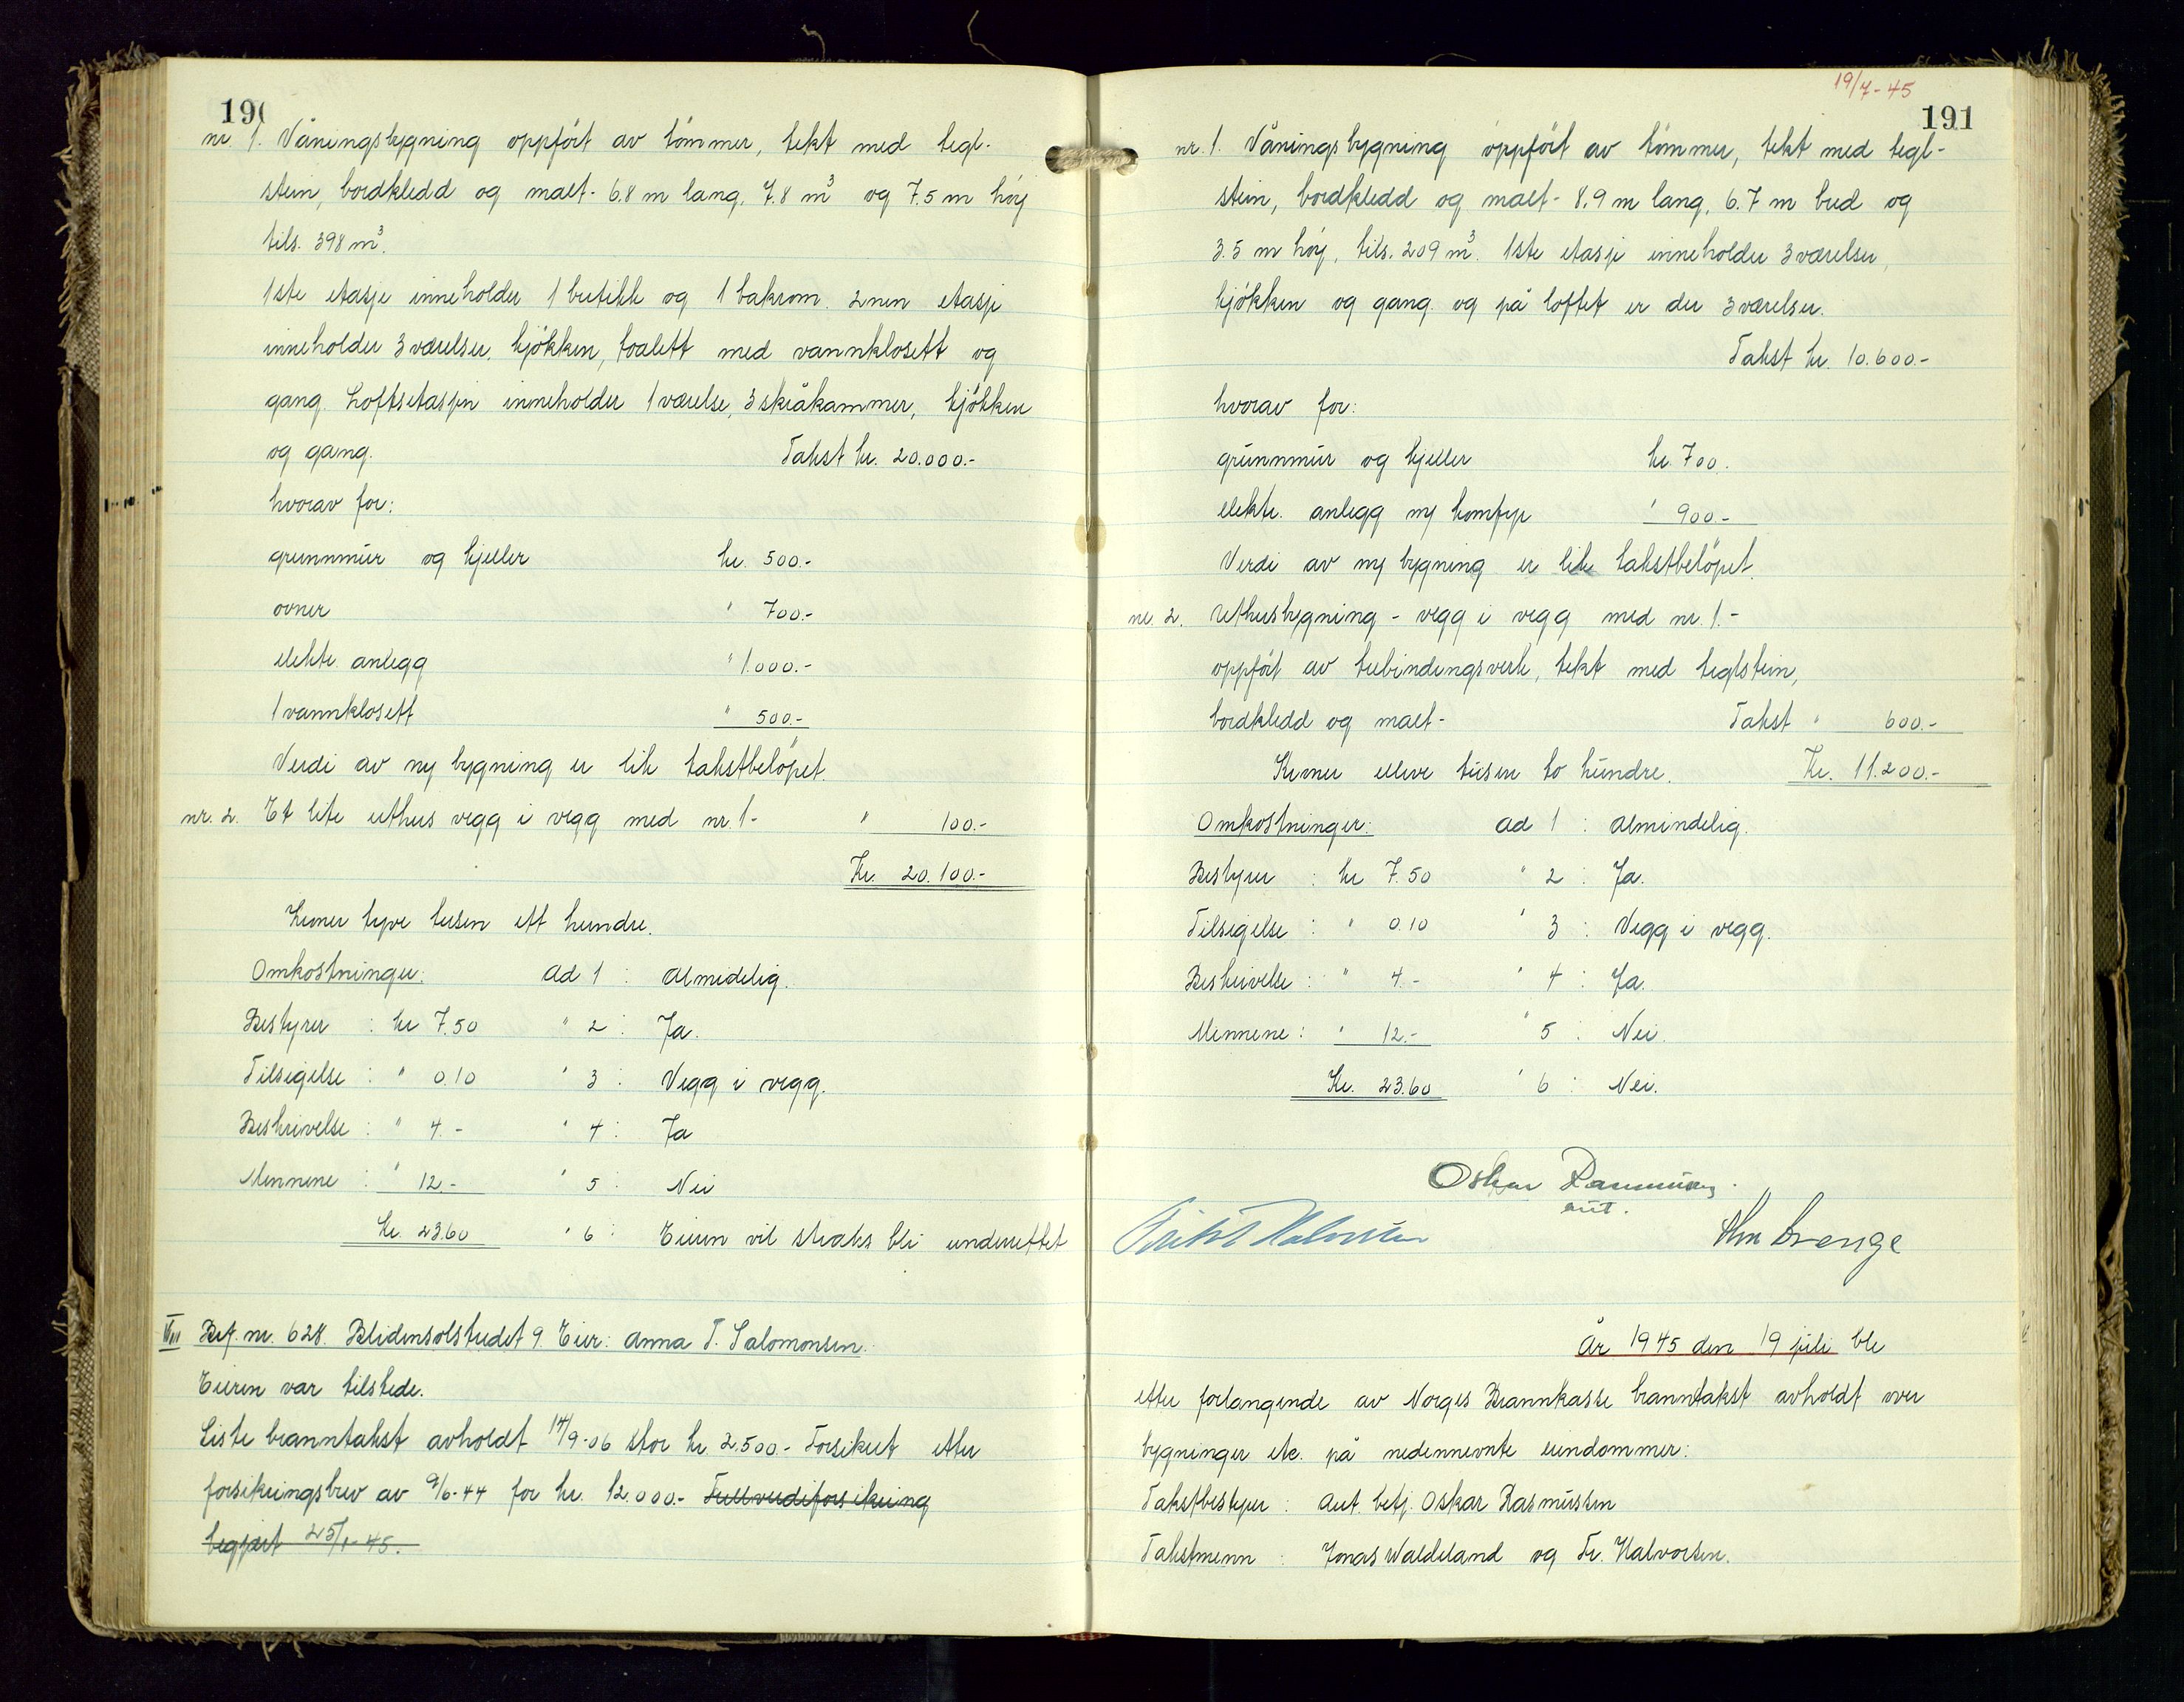 190
nr. 1. Våningsbygning oppført av tømmer, tekt med tegl-
stein, bordkledd og malt - 6.8 m lang, 7.8 m³ og 7.5 m høy
tils. 398 m³.
1ste etasje inneholder 1 butikk og 1 bakrom. 2nen etasje
inneholder 3 værelser, kjøkken, toalett med vannklosett og
gang. Loftsetasjen inneholder 1 værelse, 3 skråkammer, kjøkken
og gang. Takst kr. 20.000.-
hvorav for:
grunnmur og kjeller kr. 500.-
ovner " 700.-
elektr. anlegg " 1.000.-
1 vannklosett " 500.-
Verdi av ny bygning er lik takstbeløpet.
nr. 2. Et lite uthus vegg i vegg med nr. 1- " 100.-
Kr. 20.100.-
Kroner tyve tusen ett hundre.
Omkostninger: ad 1 : Almedelig.
Bestyrer : kr 7.50 " 2 : Ja.
Tilsigelse : " 0.10 " 3 : Vegg i vegg.
Beskrivelse : " 4.- " 4 : Ja
Mennene : " 12.- " 5 : Nei
Kr. 23.60 " 6 : Eieren vil straks bli underrettet
VIII Bef. nr. 628. Blidensolstredet 9. Eier: Anna T. Salomonsen.
Eieren var tilstede.
Siste branntakst avholdt 14/9-06 stor kr. 2.500.- Forsikret etter
forsikringsbrev av 9/6-44 for kr. 12.000.- Fullverdiforsikring
begjært 25/1-45.
19/7-45
191
nr. 1. Våningsbygning oppført av tømmer, tekt med tegl-
stein, bordkledd og malt - 8.9 m lang, 6.7 m bred og
3.5 m høy, tils. 209 m³. 1ste etasje inneholder 3 værelser,
kjøkken og gang og på loftet er der 3 værelser.
Takst kr. 10.600.-
hvorav for:
grunnmur og kjeller kr. 700.
elektr. anlegg m/ komfyr " 900.-
Verdi av ny bygning er lik takstbeløpet.
nr. 2. Uthusbygning - vegg i vegg med nr. 1.-
oppført av trebindingsverk, tekt med teglstein,
bordkledd og malt - Takst " 600.-
Kroner elleve tusen to hundre. Kr. 11.200.-
Omkostninger: ad 1 : Almindelig.
Bestyrer : kr 7.50 " 2 : Ja.
Tilsigelse : " 0.10 " 3 : Vegg i vegg.
Beskrivelse : " 4.- " 4 : Ja.
Mennene : " 12.- " 5 : Nei.
Kr. 23.60 " 6 : Nei.
Oskar Rasmussen.
aut.
Halvorsen Svenge
År 1945 den 19 juli ble
etter forlangende av Norges Brannkasse branntakst avholdt over
bygninger etc. på nedennevnte eiendommer:
Takstbestyrer : Aut. betj. Oskar Rasmussen
Takstmenn : Jonas Waldeland og Fr. Halvorsen.